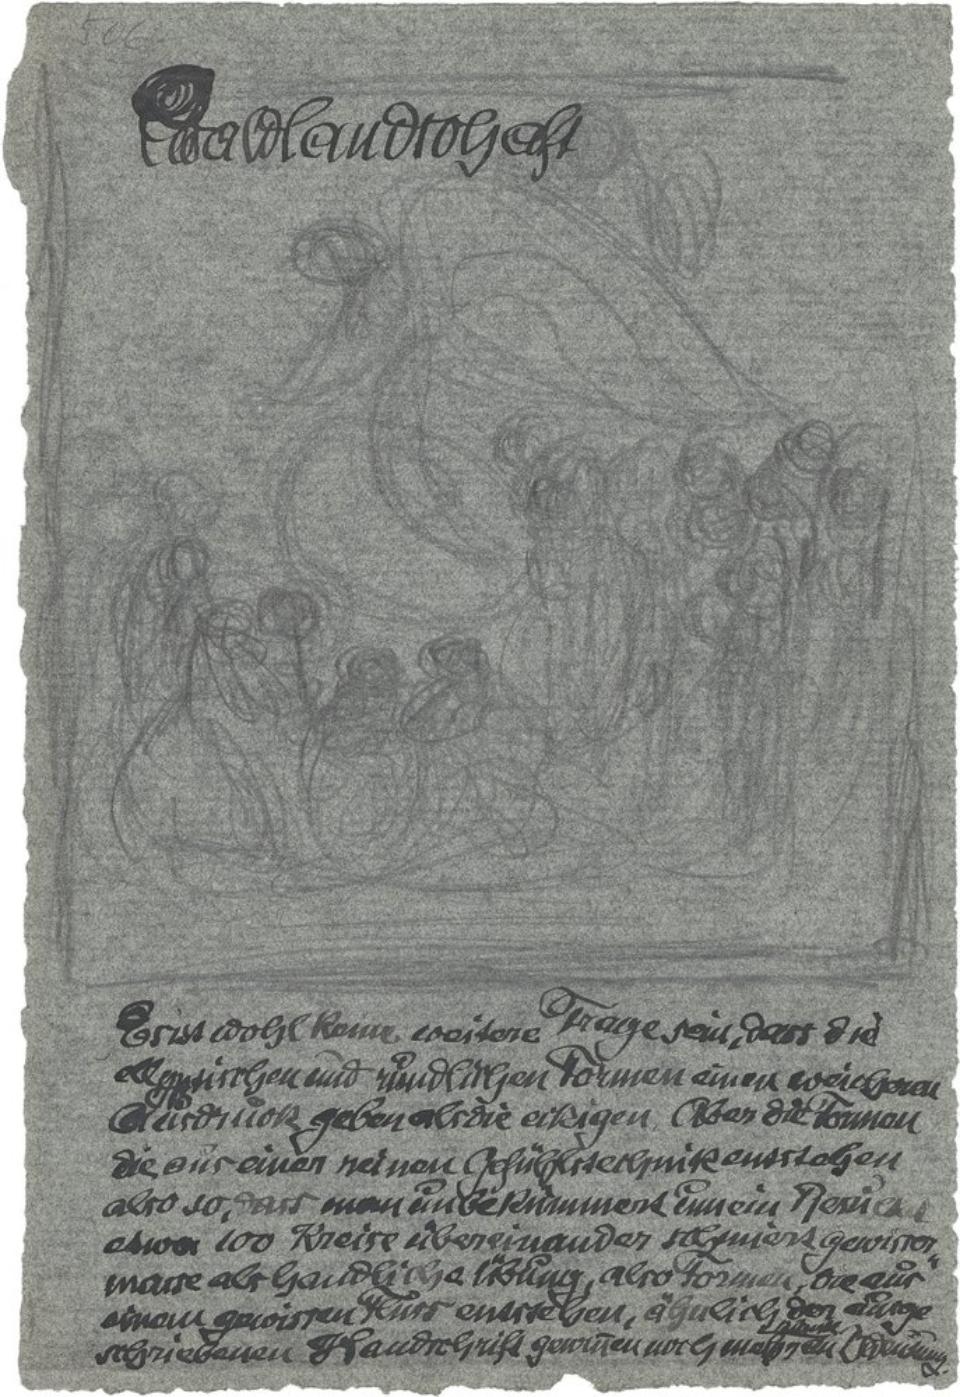 506
Waldlandschaft
Es ist wohl keine weitere Frage sein, dass die
elypsischen und rundlichen Formen einen weicheren
Ausdruck geben als die eckigen. Aber die Formen
die aus einer reinen Gefühlstechnik entstehen
also so, dass man unbekümmert um ein Resultat
etwa 100 Kreise übereinander schmiert gewisser
masse als handliche Übung, also Formen, die aus
einem gewissen Fluss entstehen, ähnlich der ausge
schriebenen Handschrift gewinnen noch mehr